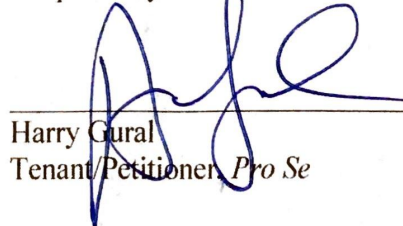 Harry Gural
Tenant/Petitioner, Pro Se